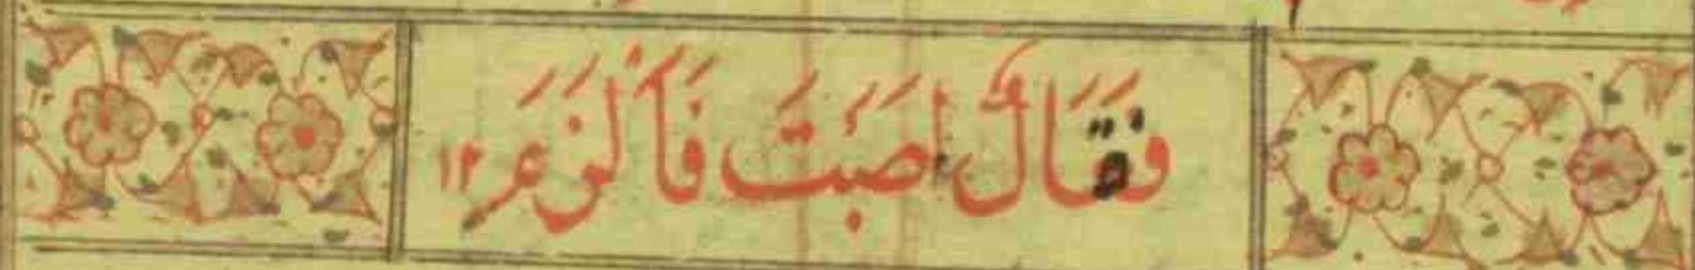 فَقَالَ اَصَبْتَ فَاَلْزَمْ ١٢